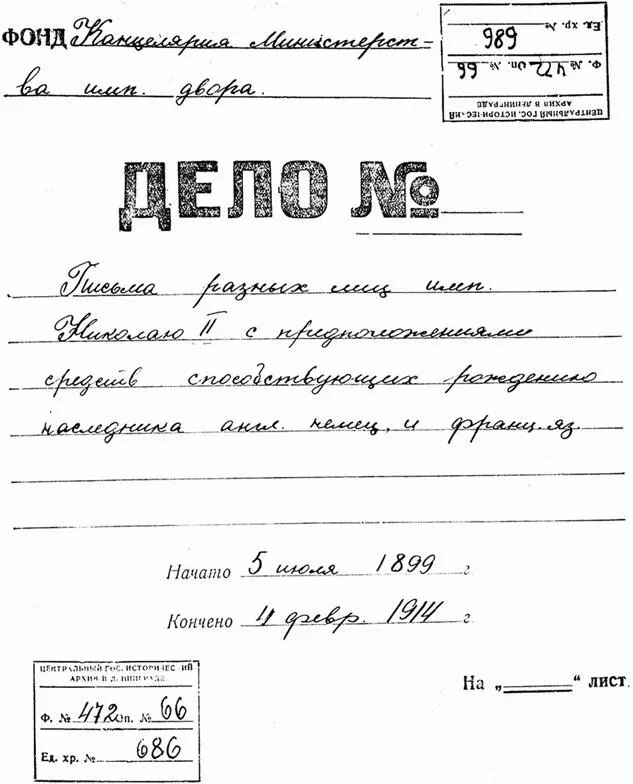 ФОНД Канцелярия Министерст-
ва имп. двора.
ЦЕНТРАЛЬНЫЙ ГОС. ИСТОРИЧЕСКИЙ
АРХИВ В ЛЕНИНГРАДЕ
Ф. № 472 Оп. № 66
Ед. хр. № 686
ДЕЛО №
Письма разных лиц имп.
Николаю II с предположениями
средств способствующих рождению
наследника англ. немец. и франц. яз.
Начато 5 июля 1899 г.
Кончено 4 февр. 1914 г.
ЦЕНТРАЛЬНЫЙ ГОС. ИСТОРИЧЕСКИЙ
АРХИВ В ЛЕНИНГРАДЕ
Ф. № 472 Оп. № 66
Ед. хр. № 686
На „ “ лист.